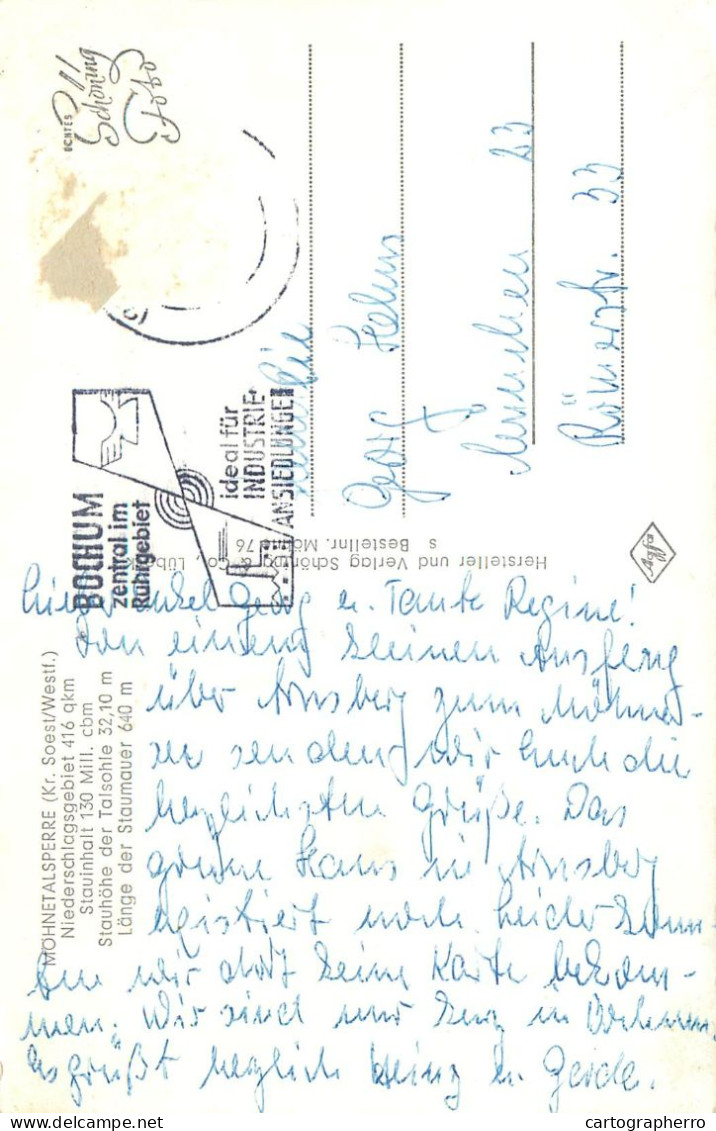 MÖHNETALSPERRE (Kr. Soest/Westf.)
Niederschlagsgebiet 416 qkm
Stauinhalt 130 Mill. cbm
Stauhöhe der Talsohle 32,10 m
Länge der Staumauer 640 m
Onkel Georg u. Tante Regine!
Von einem kleinen Ausflug
über Arnsberg zum Möhne-
see senden wir Euch die
herzlichsten Grüße. Das
grüne Haus in Arnsberg
existiert noch. Leider konn-
ten wir dort keine Karte bekom-
men. Wir sind nur kurz in
Es grüßt herzlich Heinz u. Gerda.
ECHTES
Schöning
Foto
BOCHUM
zentral im
Ruhrgebiet
ideal für
INDUSTRIE-
ANSIEDLUNGEN
Familie
Georg
München 23
Römerstr. 33
Hersteller und Verlag Schöning & Co., Lüb
s Bestellnr. Möhne 76
Agfa
cartographerro